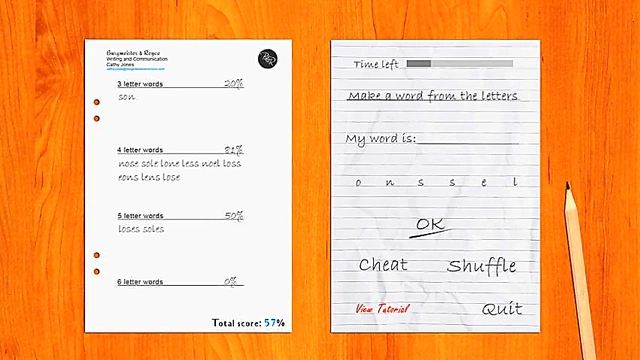 Burgmeister & Royce
Writing and Communication
Cathy Jones
3 letter words 20%
son
4 letter words 81%
nose sole lone less noel loss
eons lens lose
5 letter words 50%
loses soles
6 letter words 0%
Total score: 57%
Time left
Make a word from the letters
My word is:
o n s s e l
OK
Cheat Shuffle
View Tutorial Quit